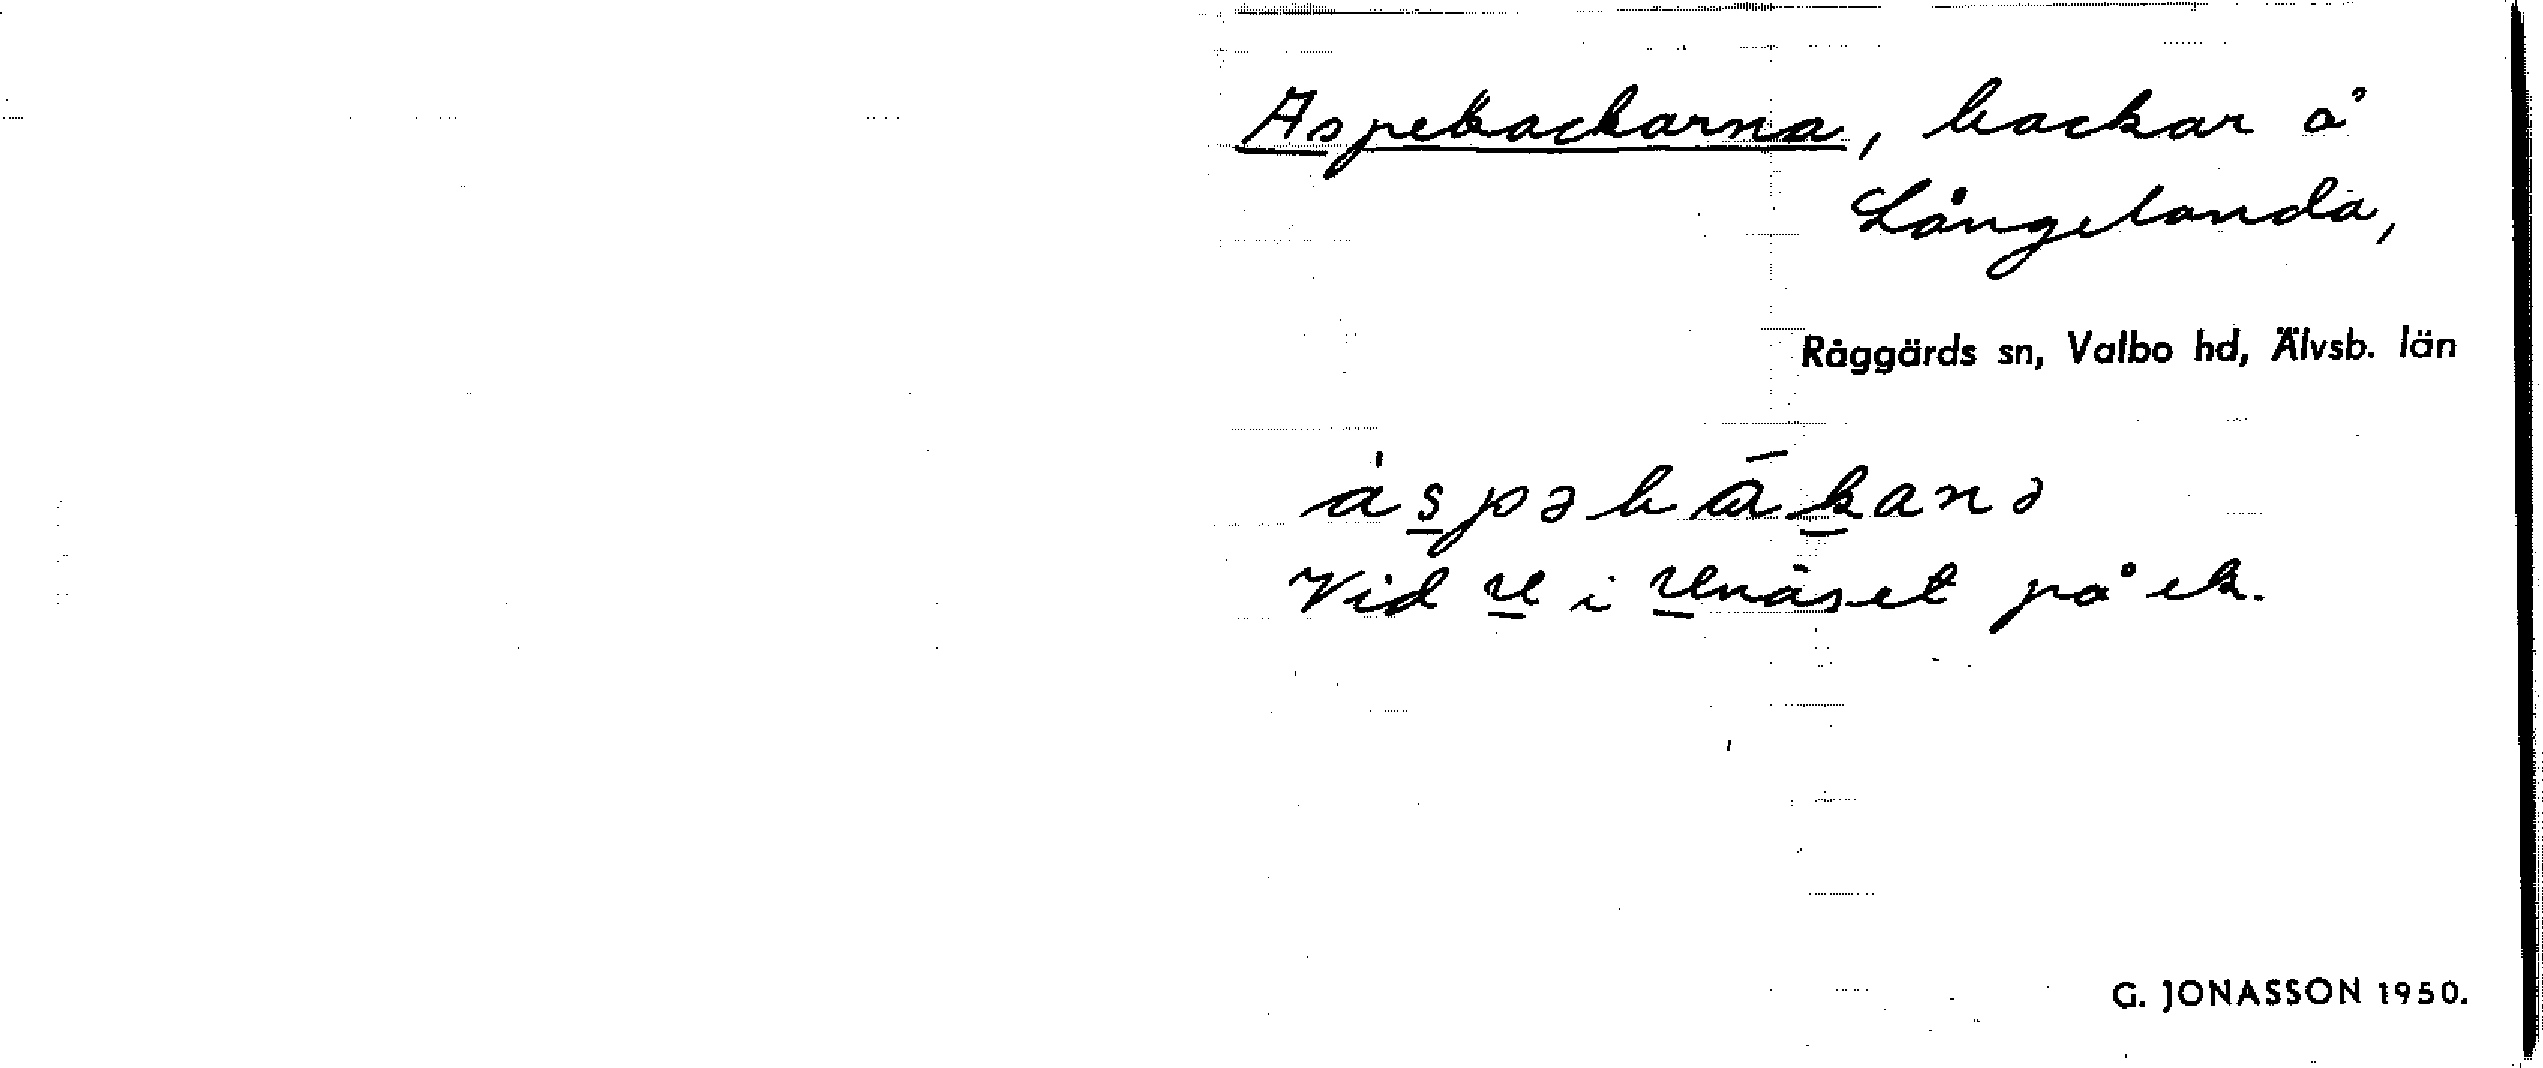 Aspebackarna, backar å
Långelanda,
Råggärds sn, Valbo hd, Älvsb. län
áspəbākanə
Vid re i renäset på ek.
G. JONASSON 1950.